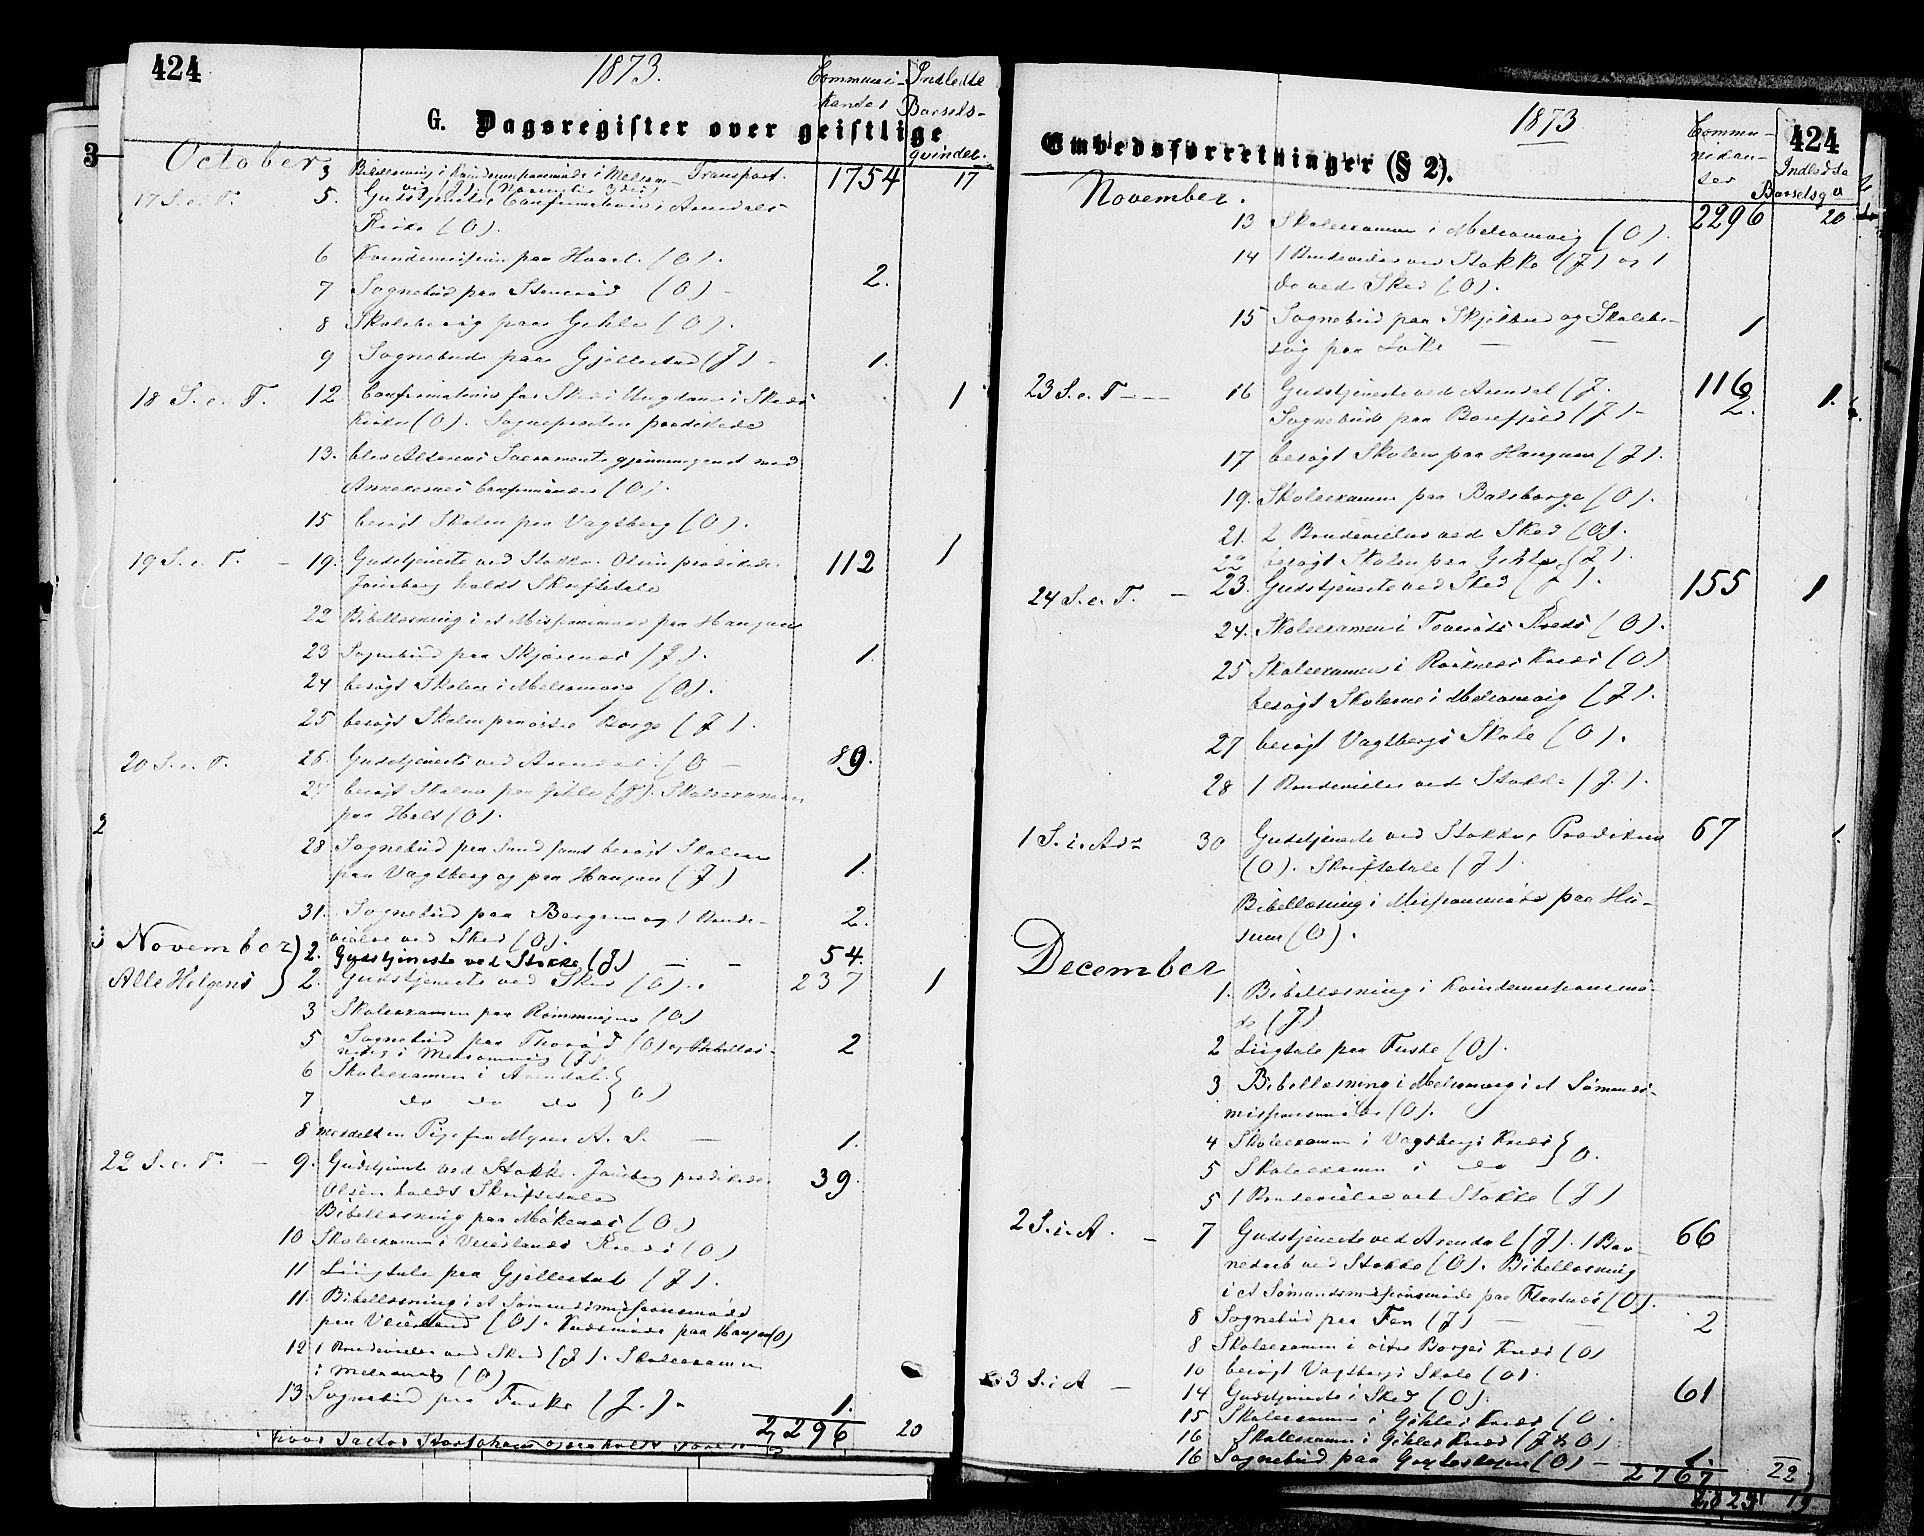 424
1873.
Communi-
kanter
Indledte
Barsels-
qvinder.
G. Dagsregister over geistlige
October
3 Bibellæsning i Kvindemissionsmøde i Melsom- Transport. 1754 17
17 S. e. T. 5. Gudstjeneste, Confirmation i Arendals
Kirke (O).
6 Kvindemission paa Hvarl. (O).
7 Sognebud paa Stenerød (O) - 2.
8 Skolebesøg paa Gehle (O).
9 Sognebud paa Gjellestad (J) - 1.
18 S. e. T. 12. Confirmation for Skees Ungdom i Skees 1
Kirke (O). Sognepresten prædikede
13. blev Alterens Sacramente gjennemgaaet med
Annexernes Confirmander (O).
15 besøgt Skolen paa Vagtberg (O).
19 S. e. T. - 19. Gudstjeneste ved Stokke. Olsen prædikede. 112 1
Jansberg holdt Skriftetale
22 Bibellæsning i et Missionsmøde paa Haugan
23 Sognebud paa Skjærsnes (J). 1.
24 besøgt Skolen i Melsomvig (O).
25 besøgt Skolen paa østre Borge (J).
20 S. e. T. 26. Gudstjeneste ved Arendal. (O - 89.
27 besøgt Skolen paa Gehle (J). Skoleexamen
paa Holt (O).
28 Sognebud paa Sund samt besøgt Skolen
paa Vagtberg og paa Haugan (J) 1.
31. Sognebud paa Bergan og 1 Brude- 2.
vielse ved Skee (O).
November 2. Gudstjeneste ved Stokke (J) - - 54.
Alle Helgens 2. Gudstjeneste ved Skee (O). 237 1
3 Skoleexamen paa Rømmingen (O)
5 Sognebud paa Thorød (O) og Bibellæs- 2
ning i Melsomvig (J).
6 Skoleexamen i Arendal. } O)
7 do do do
8 meddelt en Pige fra Myren A. S. - 1.
22 S. e. T. - 9. Gudstjeneste ved Stokke. Jansberg prædikede. 39.
Olsen holdt Skriftetale
Bibellæsning paa Møkenes (O)
10 Skoleexamen i Veierlands Kreds (O)
11 Liigtale paa Gjellestad (J).
11. Bibellæsning i et Sømandsmissionsmøde
paa Veierland (O). Kredsmøde paa Haugan (O)
12 1 Brudevielse ved Skee (J). Skoleexamen
i Melsomvig (O)
13 Sognebud paa Fuske (J). 1.
2,296 20
1873
424
Commu-
nikan-
ter
Indledte
Barselsqv
Embedsforretninger (§ 2).
November. 2296 20
13 Skoleexamen i Melsomvig (O).
14 1 Brudevielse ved Stokke (J) og 1
do ved Skee (O).
15 Sognebud paa Skjelbred og Skolebe- 1
søg paa Løke - -
23 S. e. T - - 16 Gudstjeneste ved Arendal (J. 116 1.
Sognebud paa Borefjeld (J) - 2.
17 besøgt Skolen paa Haugan (J).
19. Skoleexamen paa Baasborge (O).
21. 2 Brudevielser ved Skee (O).
22 besøgt Skolen paa Gehle (J).
24 S. e. T. - 23. Gudstjeneste ved Skee (J). 155 1
24. Skoleexamen i Toverøds Kreds (O).
25 Skoleexamen i Raaknes Kreds (O)
besøgt Skolerne i Melsomvig (J).
27 besøgt Vagtbergs Skole (O).
28 1 Brudevielse ved Stokke (J).
1 S. i. Adv 30 Gudstjeneste ved Stokke, Prædiken 67 1.
(O). Skriftetale (J)
Bibellæsning i Missionsmøde paa Hu-
sum (O).
December
1. Bibellæsning i Kvindemissionsmø-
de (J)
2 Liigtale paa Fuske (O).
3 Bibellæsning i Melsomvig i et Sømands-
missionsmøde (O).
4 Skoleexamen i Vagtbergs Kreds } O.
5 Skoleexamen i do
5 1 Brudevielse ved Stokke (J)
2 S. i. A. - 7 Gudstjeneste ved Arendal (J). 1 Bar- 66
nedaab ved Stokke (O). Bibellæsning
i et Sømandsmissionsmøde paa Flaatnes (O).
8 Sognebud paa Fen (J) - - 2
8 Skoleexamen i østre Borges Kreds (O)
10 besøgt Vagtbergs Skole (O).
3 S. i A - 14 Gudstjeneste i Skee (O). 61
15 Skoleexamen i Gehles Kreds (O.
16 Skoleexamen i Gehles Kreds (J & O)
16 Sognebud paa (O) - 1.
2767 22